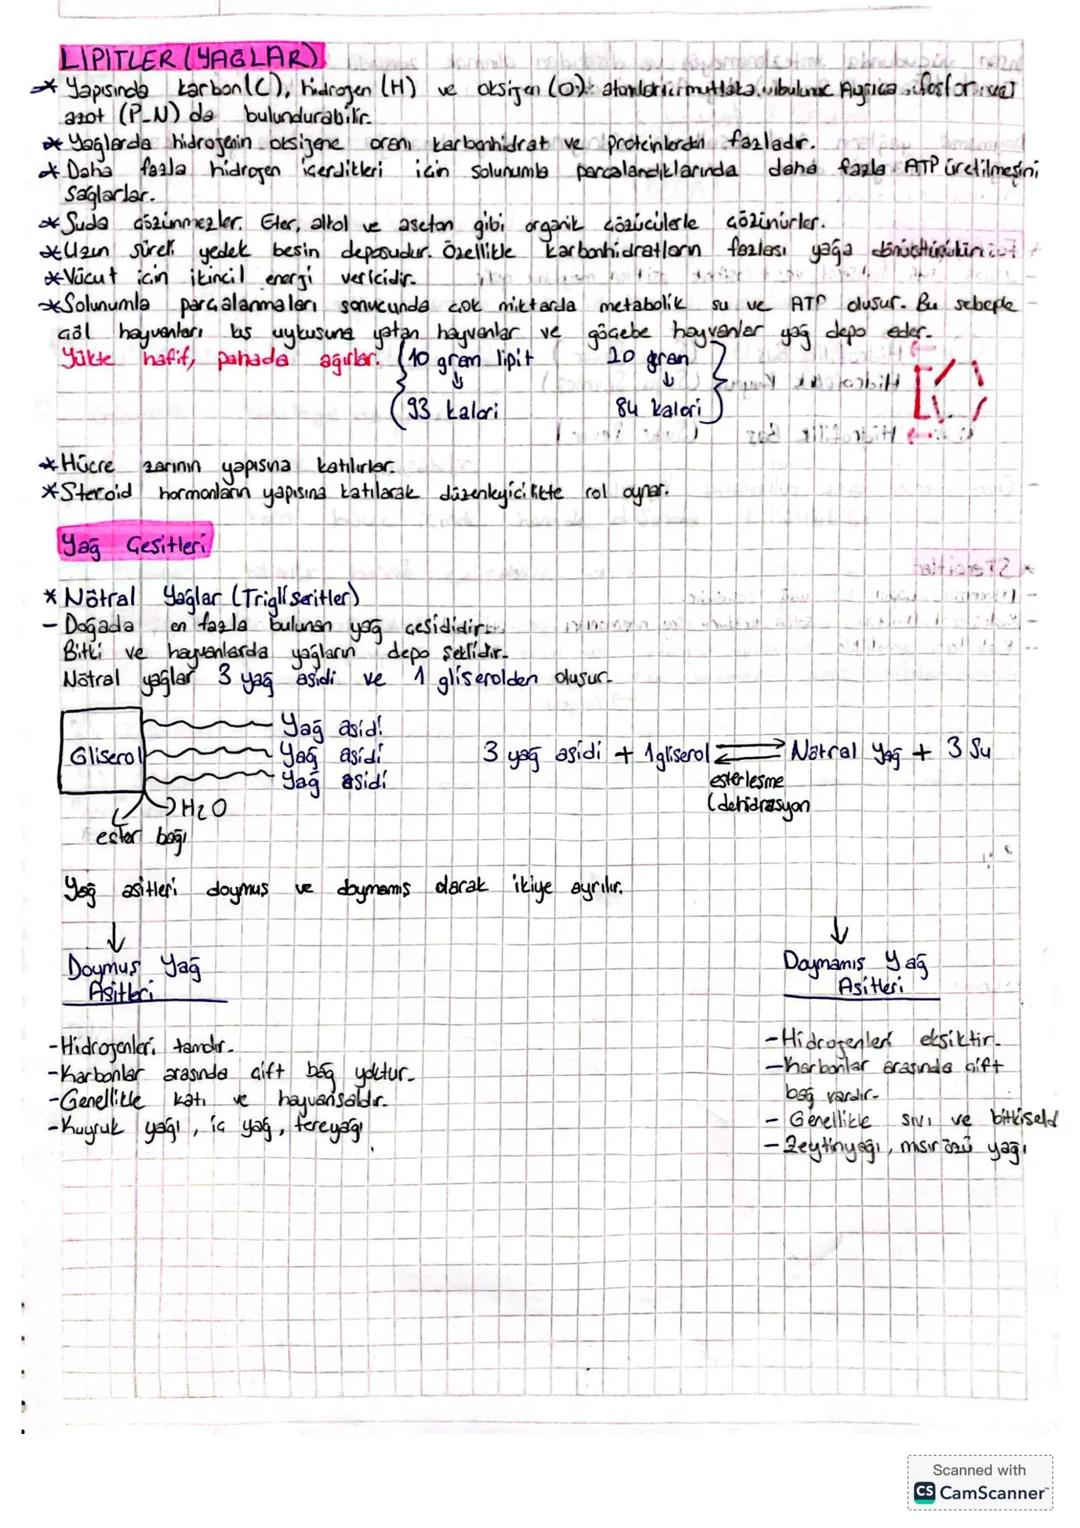 LİPİTLER (YAĞLAR)
* Yapısında karbon (C), hidrojen (H) ve oksijen (O) atomları mutlaka bulunur. Ayrıca fosfor ve
azot (P-N) da bulundurabilir.
* Yağlarda hidrojenin oksijene oranı karbonhidrat ve proteinlerden fazladır.
* Daha fazla hidrojen içerdikleri için solunumla parçalandıklarında daha fazla ATP üretilmesini
sağlarlar.
* Suda çözünmezler. Eter, alkol ve aseton gibi organik çözücülerle çözünürler.
* Uzun süreli yedek besin deposudur. Özellikle karbonhidratların fazlası yağa dönüştürülür
* Vücut için ikincil enerji vericidir.
* Solunumla parçalanmaları sonucunda çok miktarda metabolik su ve ATP oluşur. Bu sebeple
çöl hayvanları kış uykusuna yatan hayvanlar ve göçebe hayvanlar yağ depo eder.
Yükte hafif, pahada ağırlar. (10 gram lipit 20 gram
↓ ↓
93 kalori 84 kalori)
* Hücre zarının yapısına katılırlar.
* Steroid hormonların yapısına katılarak düzenleyicilikte rol oynar.
Yağ Çeşitleri
* Nötral Yağlar (Trigliseritler)
- Doğada en fazla bulunan yağ çeşididir.
Bitki ve hayvanlarda yağların depo şeklidir.
Nötral yağlar 3 yağ asidi ve 1 gliserolden oluşur.
Gliserol
Yağ asidi
Yağ asidi
Yağ asidi
H2O
ester bağı
3 yağ asidi + 1 gliserol ⇌ Nötral Yağ + 3 Su
esterleşme
(dehidrasyon
Yağ asitleri doymuş ve doymamış olarak ikiye ayrılır.
↓
Doymuş Yağ
Asitleri
- Hidrojenleri tamdır.
- Karbonlar arasında çift bağ yoktur.
- Genellikle katı ve hayvansaldır.
- Kuyruk yağı, iç yağ, tereyağı
↓
Doymamış Yağ
Asitleri
- Hidrojenleri eksiktir.
- Karbonlar arasında çift
bağ vardır.
- Genellikle sıvı ve bitkiseld
- Zeytinyağı, mısır özü yağı
Scanned with
CS CamScanner